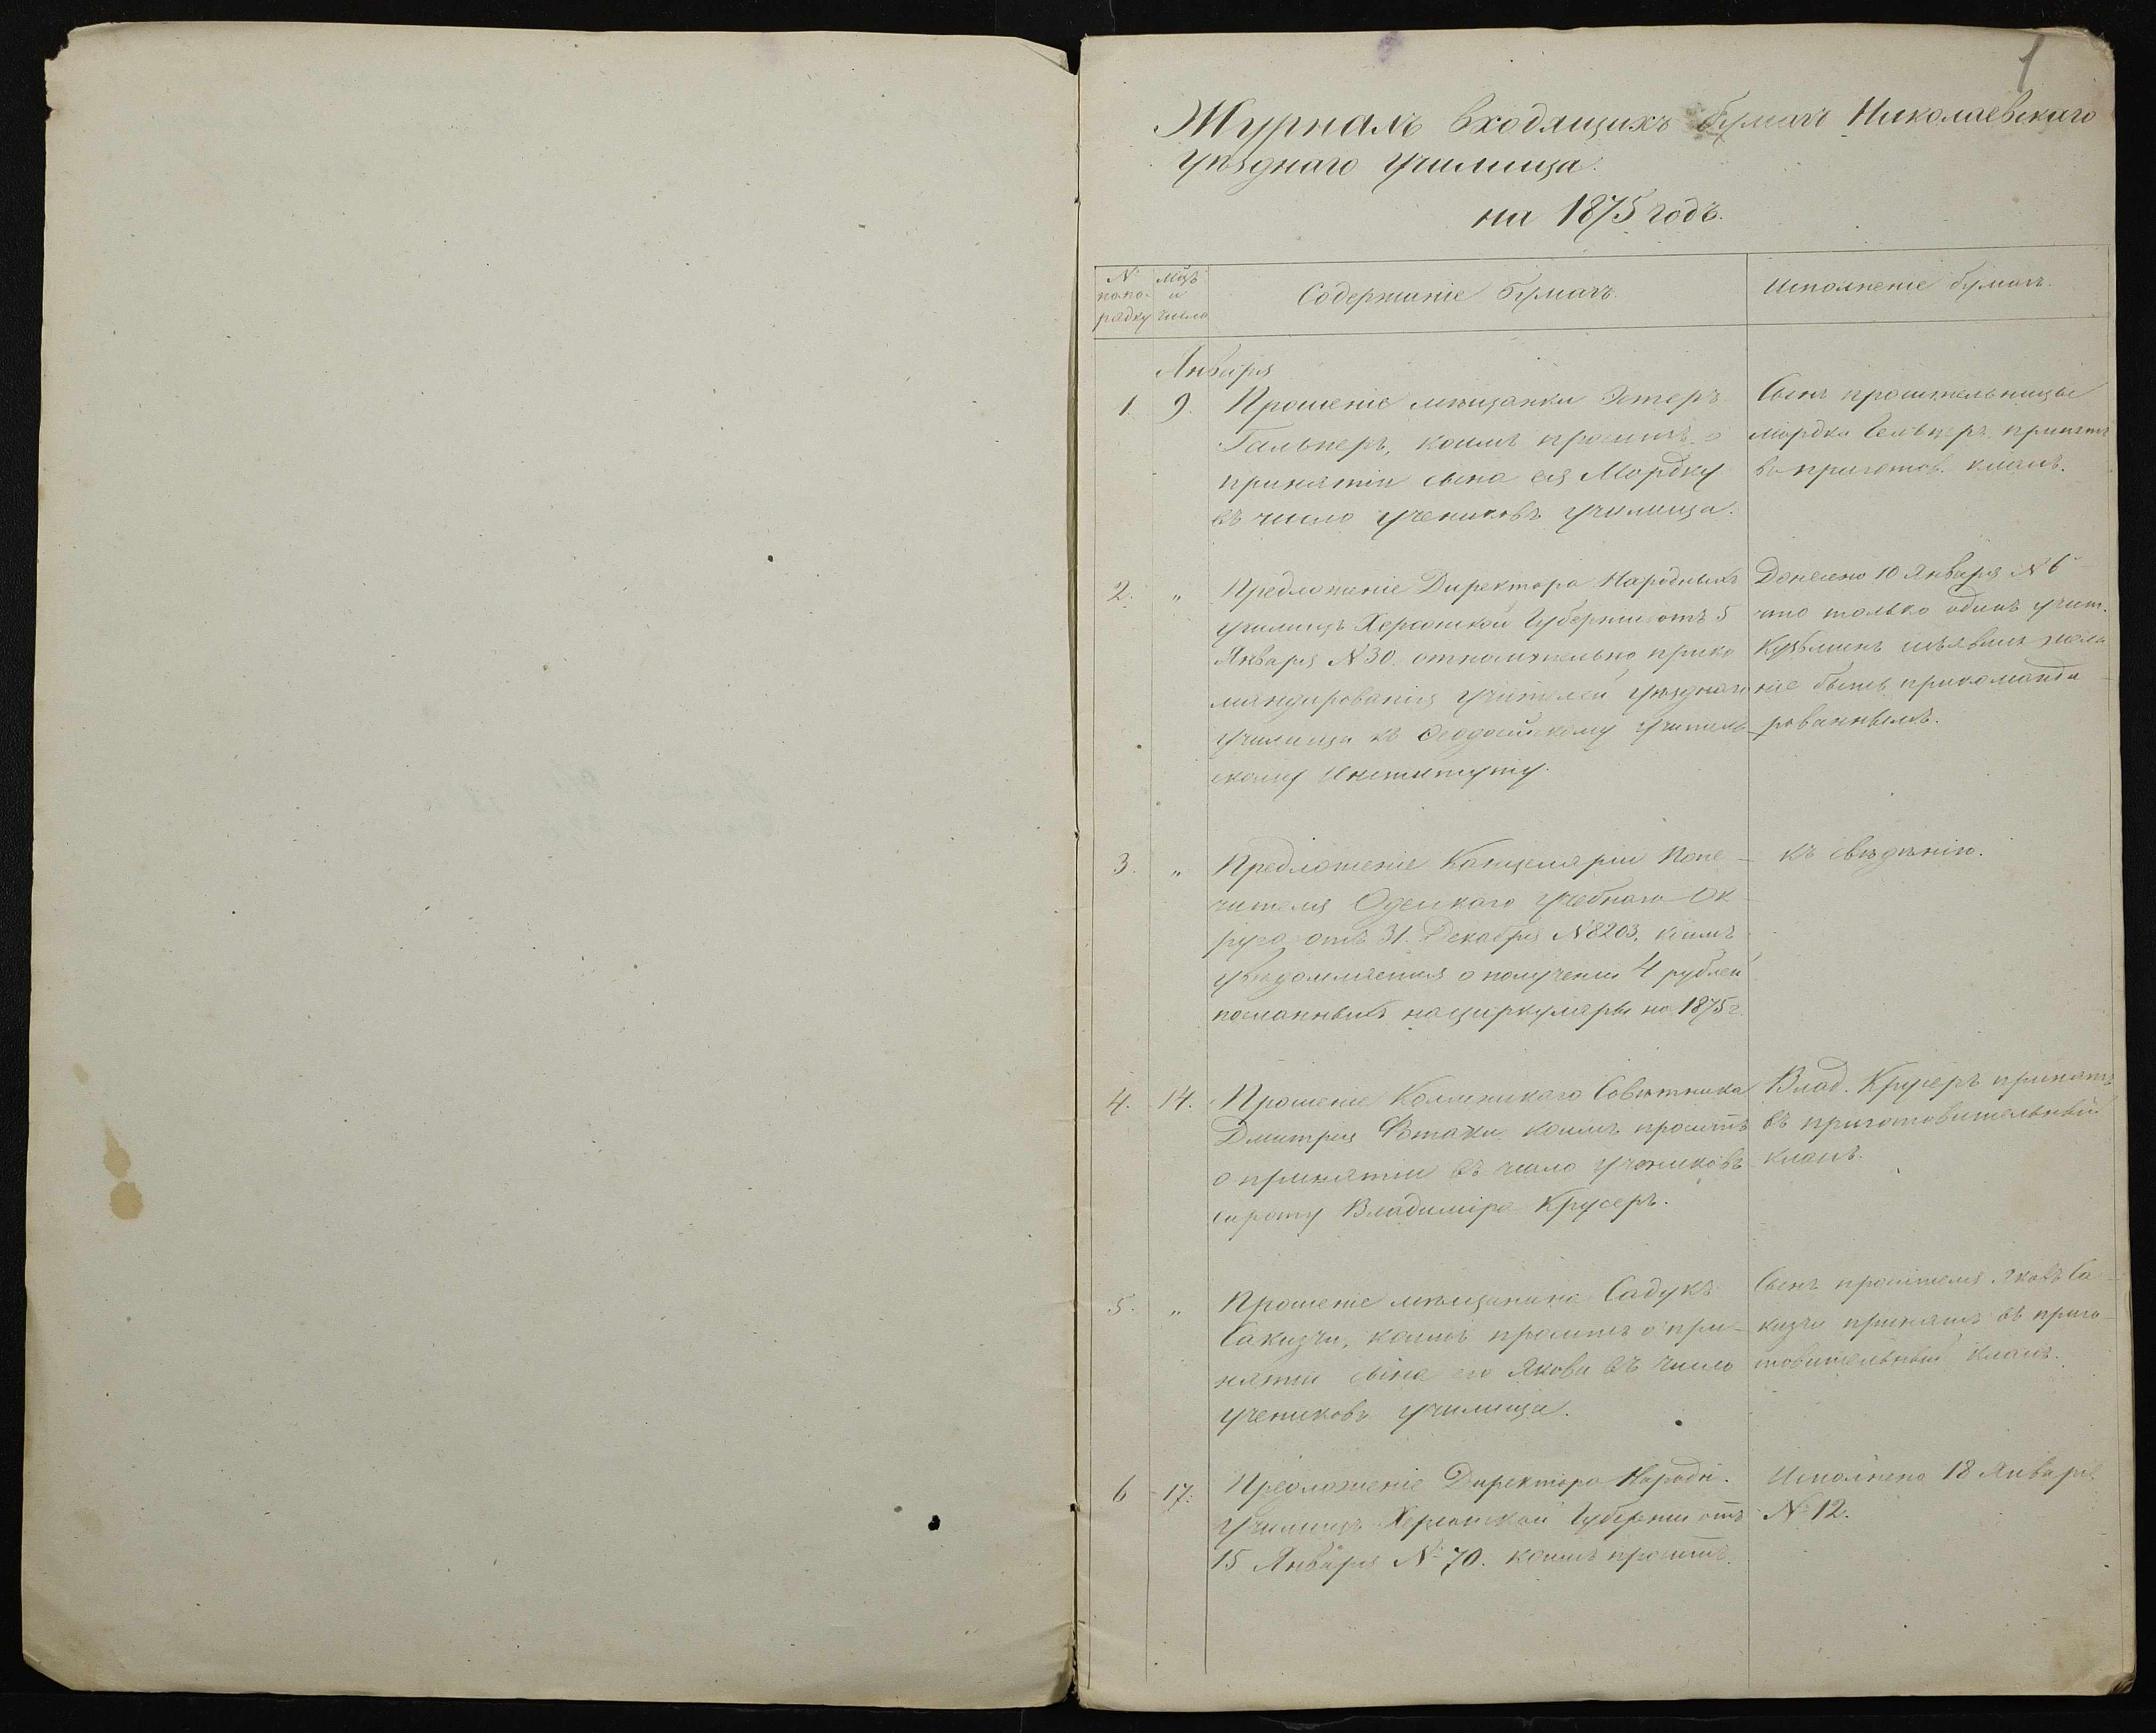 1
Журналъ входящихъ бумагъ Николаевскаго
уѣзднаго училища.
на 1875 годъ.
№ по по-рядку
Мѣць и число
Содержаніе бумагъ.
Исполненіе бумагъ.
Января
1. 9. Прошеніе мѣщанки Эстеръ
Гальперъ, коимъ проситъ о
принятіи сына ея Мордку
въ число учениковъ училища.
Сынъ просительницы
Мордко принятъ
въ приготов. классъ.
2. „ Предложеніе Директора Народныхъ
училищъ Херсонской Губерніи отъ 5
Января № 30. относительно прико
мандированія учителей уѣзднаго
училища къ Ѳеодосійскому Учитель
скому Институту.
Донесено 10 Января № 6
что только одинъ учит.
изъявилъ жела
ніе быть прикоманди
рованнымъ.
3. „ Предложеніе Канцеляріи Попе-
чителя Одесскаго Учебнаго Ок-
руга отъ 31. Декабря № 8203. коимъ
увѣдомляется о полученіи 4 рублей
посланныхъ на циркуляры на 1875 г.
къ свѣдѣнію.
4. 14. Прошеніе Коллежскаго Совѣтника
Дмитрія коимъ проситъ
о принятіи въ число учениковъ
сироту Владиміра Крусеръ.
Влад. Крусеръ принятъ
въ приготовительный
классъ.
5. „ Прошеніе мѣщанина Садукъ
Сакизчи, коимъ проситъ о при-
нятіи сына его Якова въ число
учениковъ училища.
Сынъ просителя Яковъ Са-
кизчи принятъ въ приго-
товительный классъ.
6 17. Предложеніе Директора Народн.
Училищъ Херсонской Губерніи отъ
15 Января № 70. коимъ проситъ.
Исполнено 18 Января
№ 12.